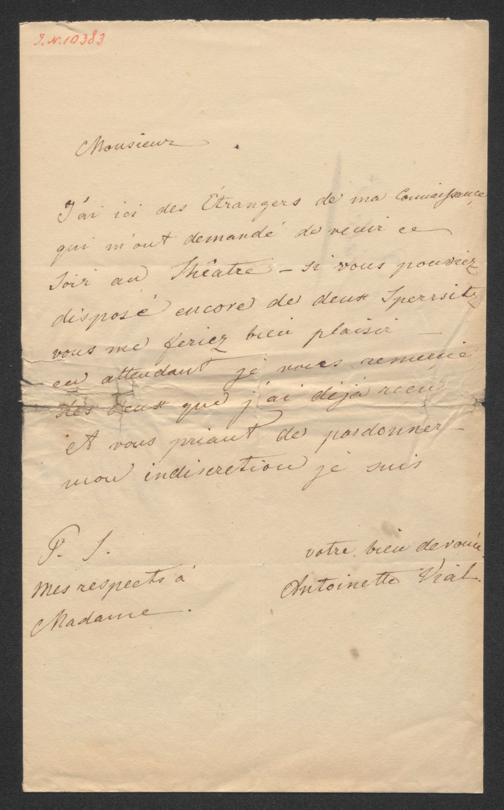 I.N.10383
Monsieur
J'ai ici des Étrangers de ma Connaissance
qui m'ont demandé de venir ce
Soir au Théâtre – si vous pouviez
disposé encore de deux Sperrsitz
vous me feriez bien plaisir –
en attendant je vous remercie
des deux que j'ai déjà reçu
Et vous priant de pardonner –
mon indiscretion je suis
votre bien devouée
Antoinette Vial
P. S.
Mes respects à
Madame.